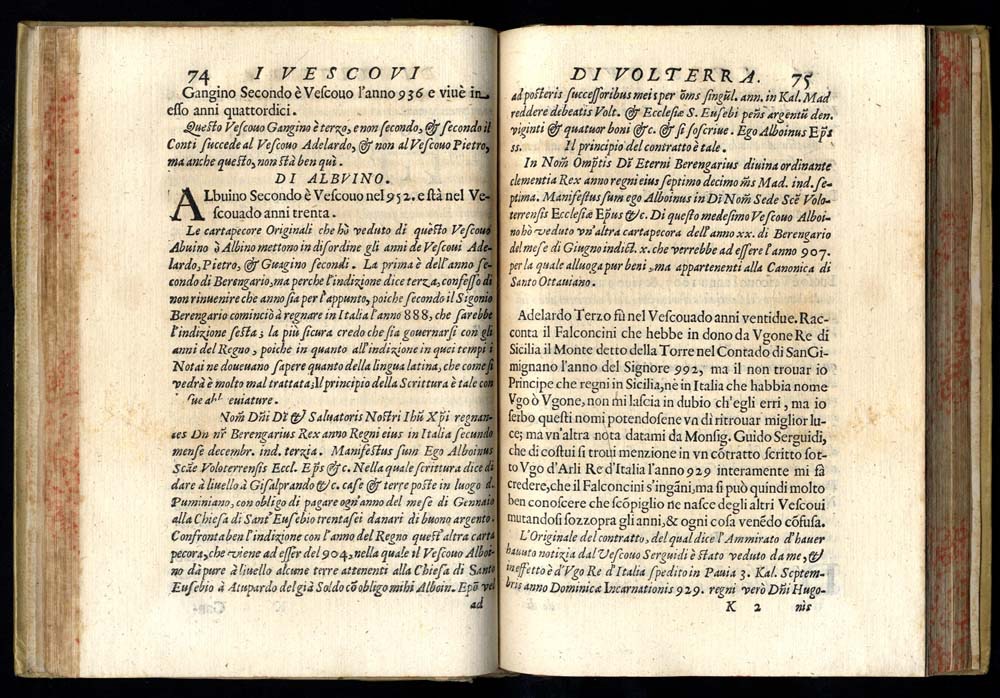 74 I VESCOVI
Gangino Secondo è Vescouo l'anno 936 e viuè in
esso anni quattordici.
Questo Vescouo Gangino è terzo, e non secondo, & secondo il
Conti succede al Vescouo Adelardo, & non al Vescouo Pietro,
ma anche questo, non stà ben quì.
DI ALBVINO.
ALbuino Secondo è Vescouo nel 952. e stà nel Ve-
scouado anni trenta.
Le cartapecore Originali che hò veduto di questo Vescouo
Abuino ò Albino mettono in disordine gli anni de Vescoui Ade-
lardo, Pietro, & Guagino secondi. La prima è dell'anno se-
condo di Berengario, ma perche l'indizione dice terza, confesso di
non rinuenire che anno sia per l'appunto, poiche secondo il Sigonio
Berengario cominciò à regnare in Italia l'anno 888, che sarebbe
l'indizione sesta; la più sicura credo che sia gouernarsi con gli
anni del Regno, poiche in quanto all'indizione in quei tempi i
Notai ne doueuano sapere quanto della lingua latina, che come si
vedrà è molto mal trattata; Il principio della Scrittura è tale con
sue abbreuiature.
Nom̃ Dñi Dĩ & Saluatoris Nostri Ihũ Xp̃i regnan-
tes Dn nr̃ Berengarius Rex anno Regni eius in Italia secundo
mense decembr. ind. terzia. Manifestus sum Ego Alboinus
Scãe Voloterrensis Eccl. Ep̃s & c. Nella quale scrittura dice di
dare à liuello à Gisalprando & c. case & terre poste in luogo d.
Puminiano, con obligo di pagare ogn'anno del mese di Gennaio
alla Chiesa di Sant' Eusebio trentasei danari di buono argento.
Confronta ben l'indizione con l'anno del Regno quest'altra carta
pecora, che viene ad esser del 904, nella quale il Vescouo Alboi-
no dà pure à liuello alcune terre attenenti alla Chiesa di Santo
Eusebio à Atupardo del già Soldo cõ obligo mihi Alboin. Epõ vel
ad
DI VOLTERRA. 75
ad posteris successoribus meis per õms singũl. ann. in Kal. Mad
reddere debeatis Volt. & Ecclesiæ S. Eusebi peñs argentũ den.
viginti & quatuor boni & c. & si soscriue. Ego Alboinus Ep̃s
ss. Il principio del contratto è tale.
In Nom̃ Omp̃tis Dĩ Eterni Berengarius diuina ordinante
clementia Rex anno regni eius septimo decimo m̃s Mad. ind. se-
ptima. Manifestus sum ego Alboinus in Dĩ Nom̃ Sede Scẽ Volo-
terrensis Ecclesiæ Ep̃us & c. Di questo medesimo Vescouo Alboi-
no hò veduto vn'altra cartapecora dell'anno xx. di Berengario
del mese di Giugno indict. x. che verrebbe ad essere l'anno 907.
per la quale alluoga pur beni, ma appartenenti alla Canonica di
Santo Ottauiano.
Adelardo Terzo fù nel Vescouado anni ventidue. Rac-
conta il Falconcini che hebbe in dono da Vgone Re di
Sicilia il Monte detto della Torre nel Contado di SanGi-
mignano l'anno del Signore 992, ma il non trouar io
Principe che regni in Sicilia, nè in Italia che habbia nome
Vgo ò Vgone, non mi lascia in dubio ch'egli erri, ma io
serbo questi nomi potendosene vn dì ritrouar miglior lu-
ce; ma vn'altra nota datami da Monsig. Guido Serguidi,
che di costui si troui menzione in vn cõtratto scritto sot-
to Vgo d'Arli Re d'Italia l'anno 929 interamente mi fà
credere, che il Falconcini s'ingãni, ma si può quindi molto
ben conoscere che scõpiglio ne nasce degli altri Vescoui
mutandosi sozzopra gli anni, & ogni cosa venẽdo cõfusa.
L'Originale del contratto, del qual dice l'Ammirato d'hauer
hauuto notizia dal Vescouo Serguidi è stato veduto da me, &
in effetto è d'Vgo Re d'Italia spedito in Pauia 3. Kal. Septem-
bris anno Dominicæ Incarnationis 929. regni verò Dñi Hugo-
K 2 nis